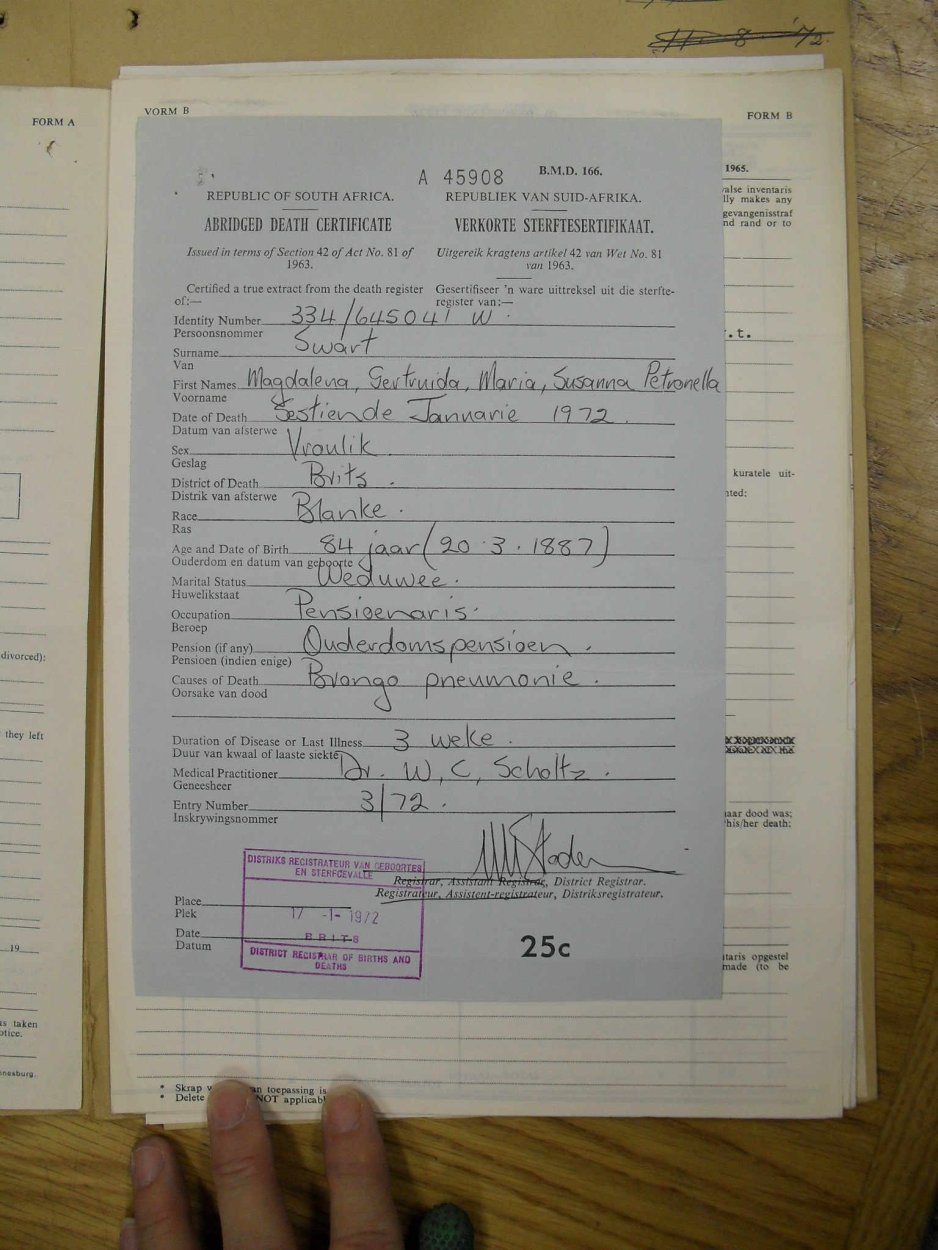 11 - 8 - '72
FORM A
VORM B
FORM B
A 45908
B.M.D. 166.
1965.
REPUBLIC OF SOUTH AFRICA.
REPUBLIEK VAN SUID-AFRIKA.
ABRIDGED DEATH CERTIFICATE
VERKORTE STERFTESERTIFIKAAT.
Issued in terms of Section 42 of Act No. 81 of
1963.
Uitgereik kragtens artikel 42 van Wet No. 81
van 1963.
Certified a true extract from the death register
of:—
Gesertifiseer 'n ware uittreksel uit die sterfte-
register van:—
Identity Number 334/645041 W.
Persoonsnommer
Surname Swart
Van
First Names Magdalena, Gertruida, Maria, Susanna Petronella
Voorname
Date of Death Sestiende Januarie 1972.
Datum van afsterwe
Sex Vroulik
Geslag
District of Death Brits.
Distrik van afsterwe
Race Blanke.
Ras
Age and Date of Birth 84 jaar (20.3.1887)
Ouderdom en datum van geboorte
Marital Status Weduwee.
Huwelikstaat
Occupation Pensioenaris.
Beroep
Pension (if any) Ouderdomspensioen.
Pensioen (indien enige)
Causes of Death Brongo pneumonie.
Oorsake van dood
Duration of Disease or Last Illness 3 weke.
Duur van kwaal of laaste siekte
Medical Practitioner Dr. W, C, Scholtz.
Geneesheer
Entry Number 3/72.
Inskrywingsnommer
Registrar, Assistant Registrar, District Registrar.
Registrateur, Assistent-registrateur, Distriksregistrateur.
Place
Plek
Date
Datum
DISTRIKS REGISTRATEUR VAN GEBOORTES
EN STERFGEVALLE
17 -1- 1972
BRITS
DISTRICT REGISTRAR OF BIRTHS AND
DEATHS
25c
valse inventaris
lly makes any
gevangenisstraf
nd rand or to
r.t.
kuratele uit-
nted;
naar dood was;
his/her death:
taris opgestel
made (to be
divorced):
they left
19
as taken
otice.
nnesburg.
* Skrap an toepassing is
* Delete NOT applicabl